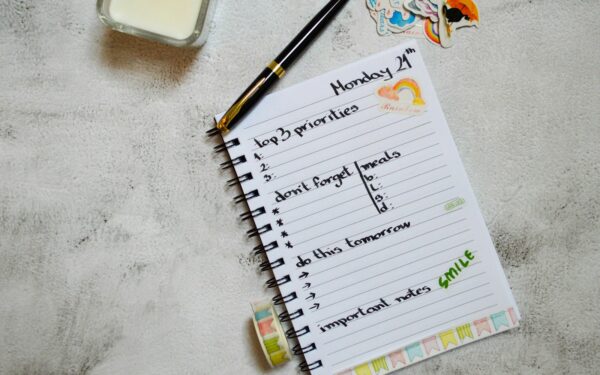 Monday 21th
Rainbow
top 3 priorities
1:
2:
3:
don't forget
*
*
*
*
meals
b:
L:
s:
d:
do this tomorrow
→
→
→
important notes
SMILE